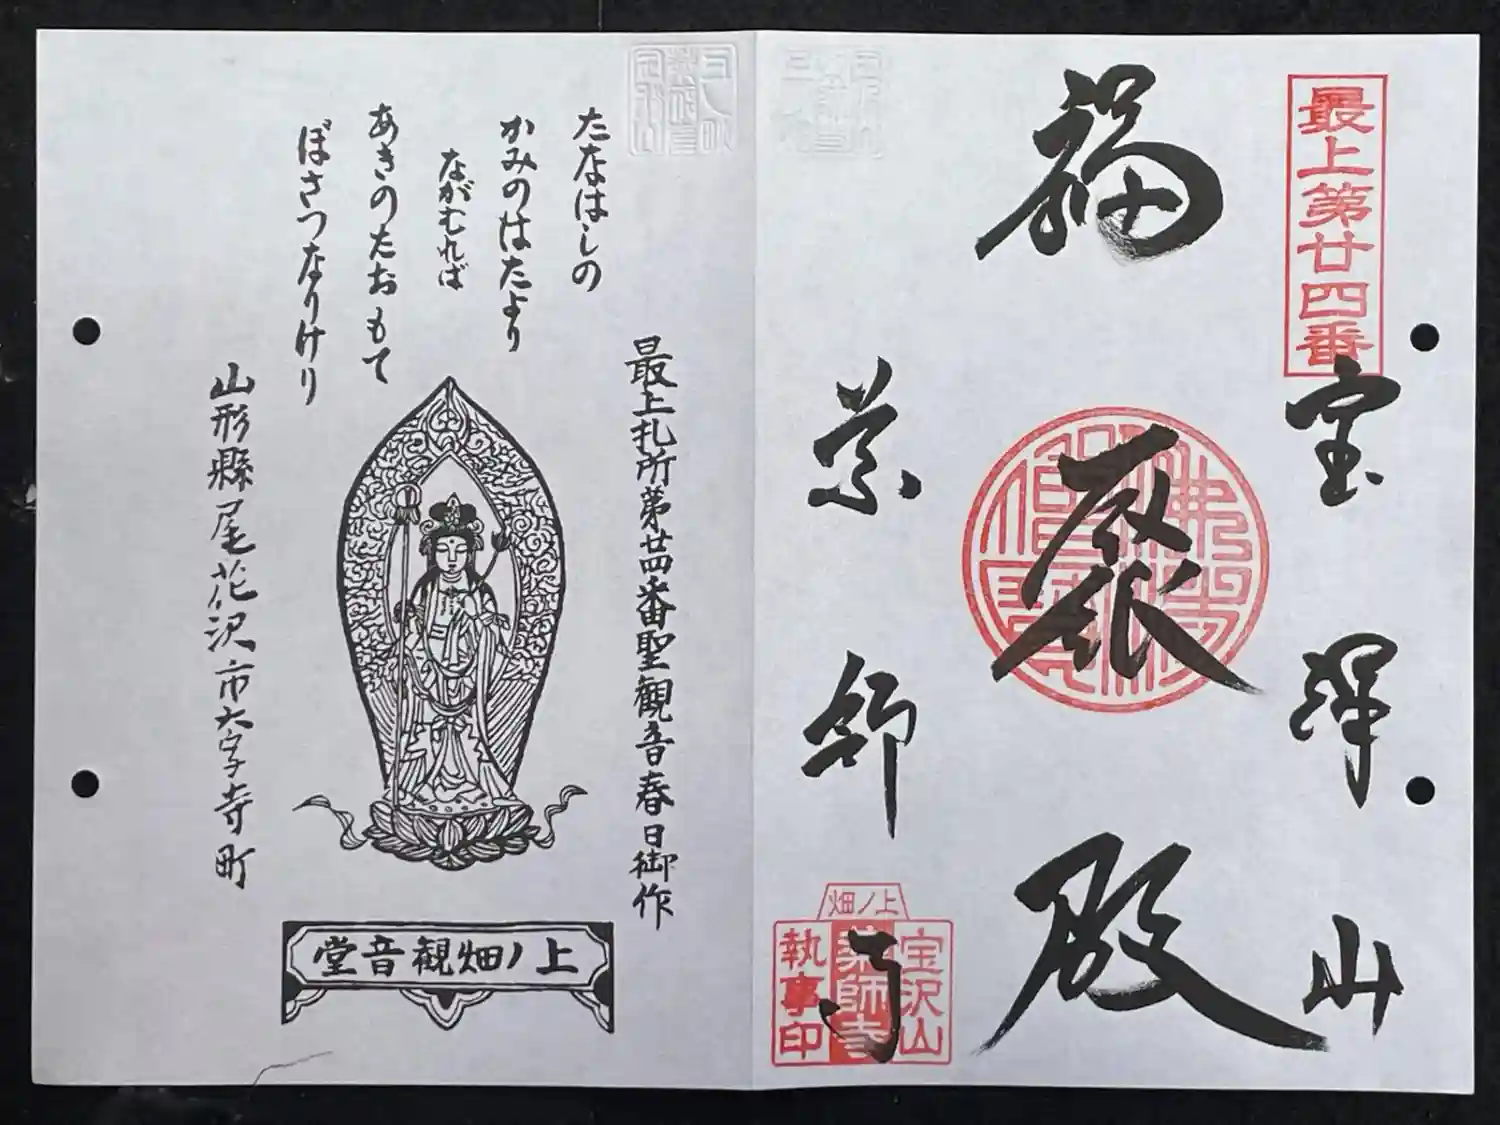 最上第廿四番
宝澤山
福聚殿
佛法僧寶
薬師寺
上ノ畑
宝沢山
薬師寺
執事印
たなはしの
かみのはたより
ながむれば
あきのたおもて
ぼさつなりけり
最上札所第廿四番聖観音春日御作
山形縣尾花沢市大字寺町
上ノ畑観音堂